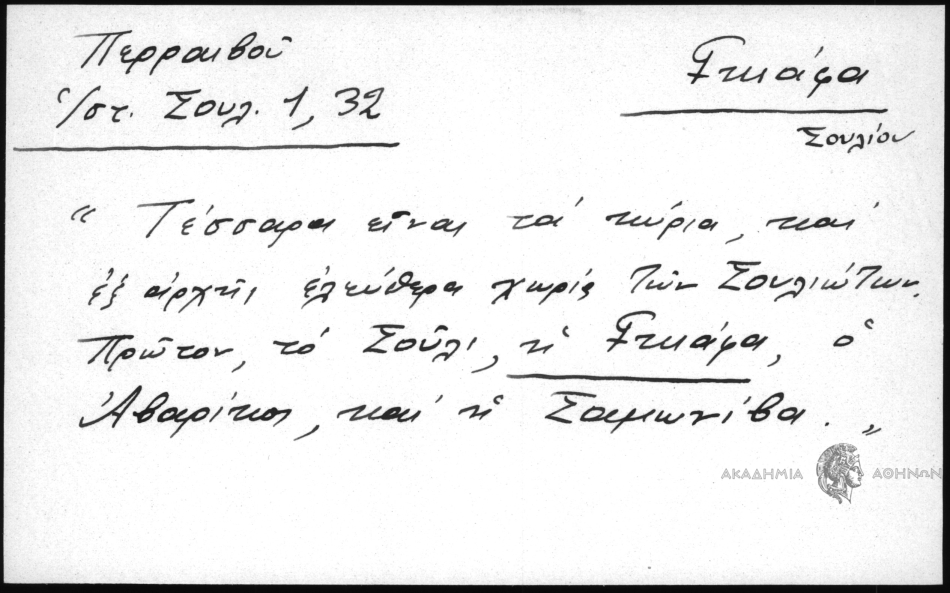 Περραιβοῦ
Ἱστ. Σουλ. 1, 32
Γκιάφα
Σουλίου
“ Τέσσαρα εἶναι τά κύρια, καί
ἐξ ἀρχῆς ἐλεύθερα χωρίς τῶν Σουλιώτων.
Πρῶτον, τό Σοῦλι, ἡ Γκιάφα, ὁ
Ἀβαρίκος, καί ἡ Σαμωνίβα. „
ΑΚΑΔΗΜΙΑ ΑΘΗΝΩΝ